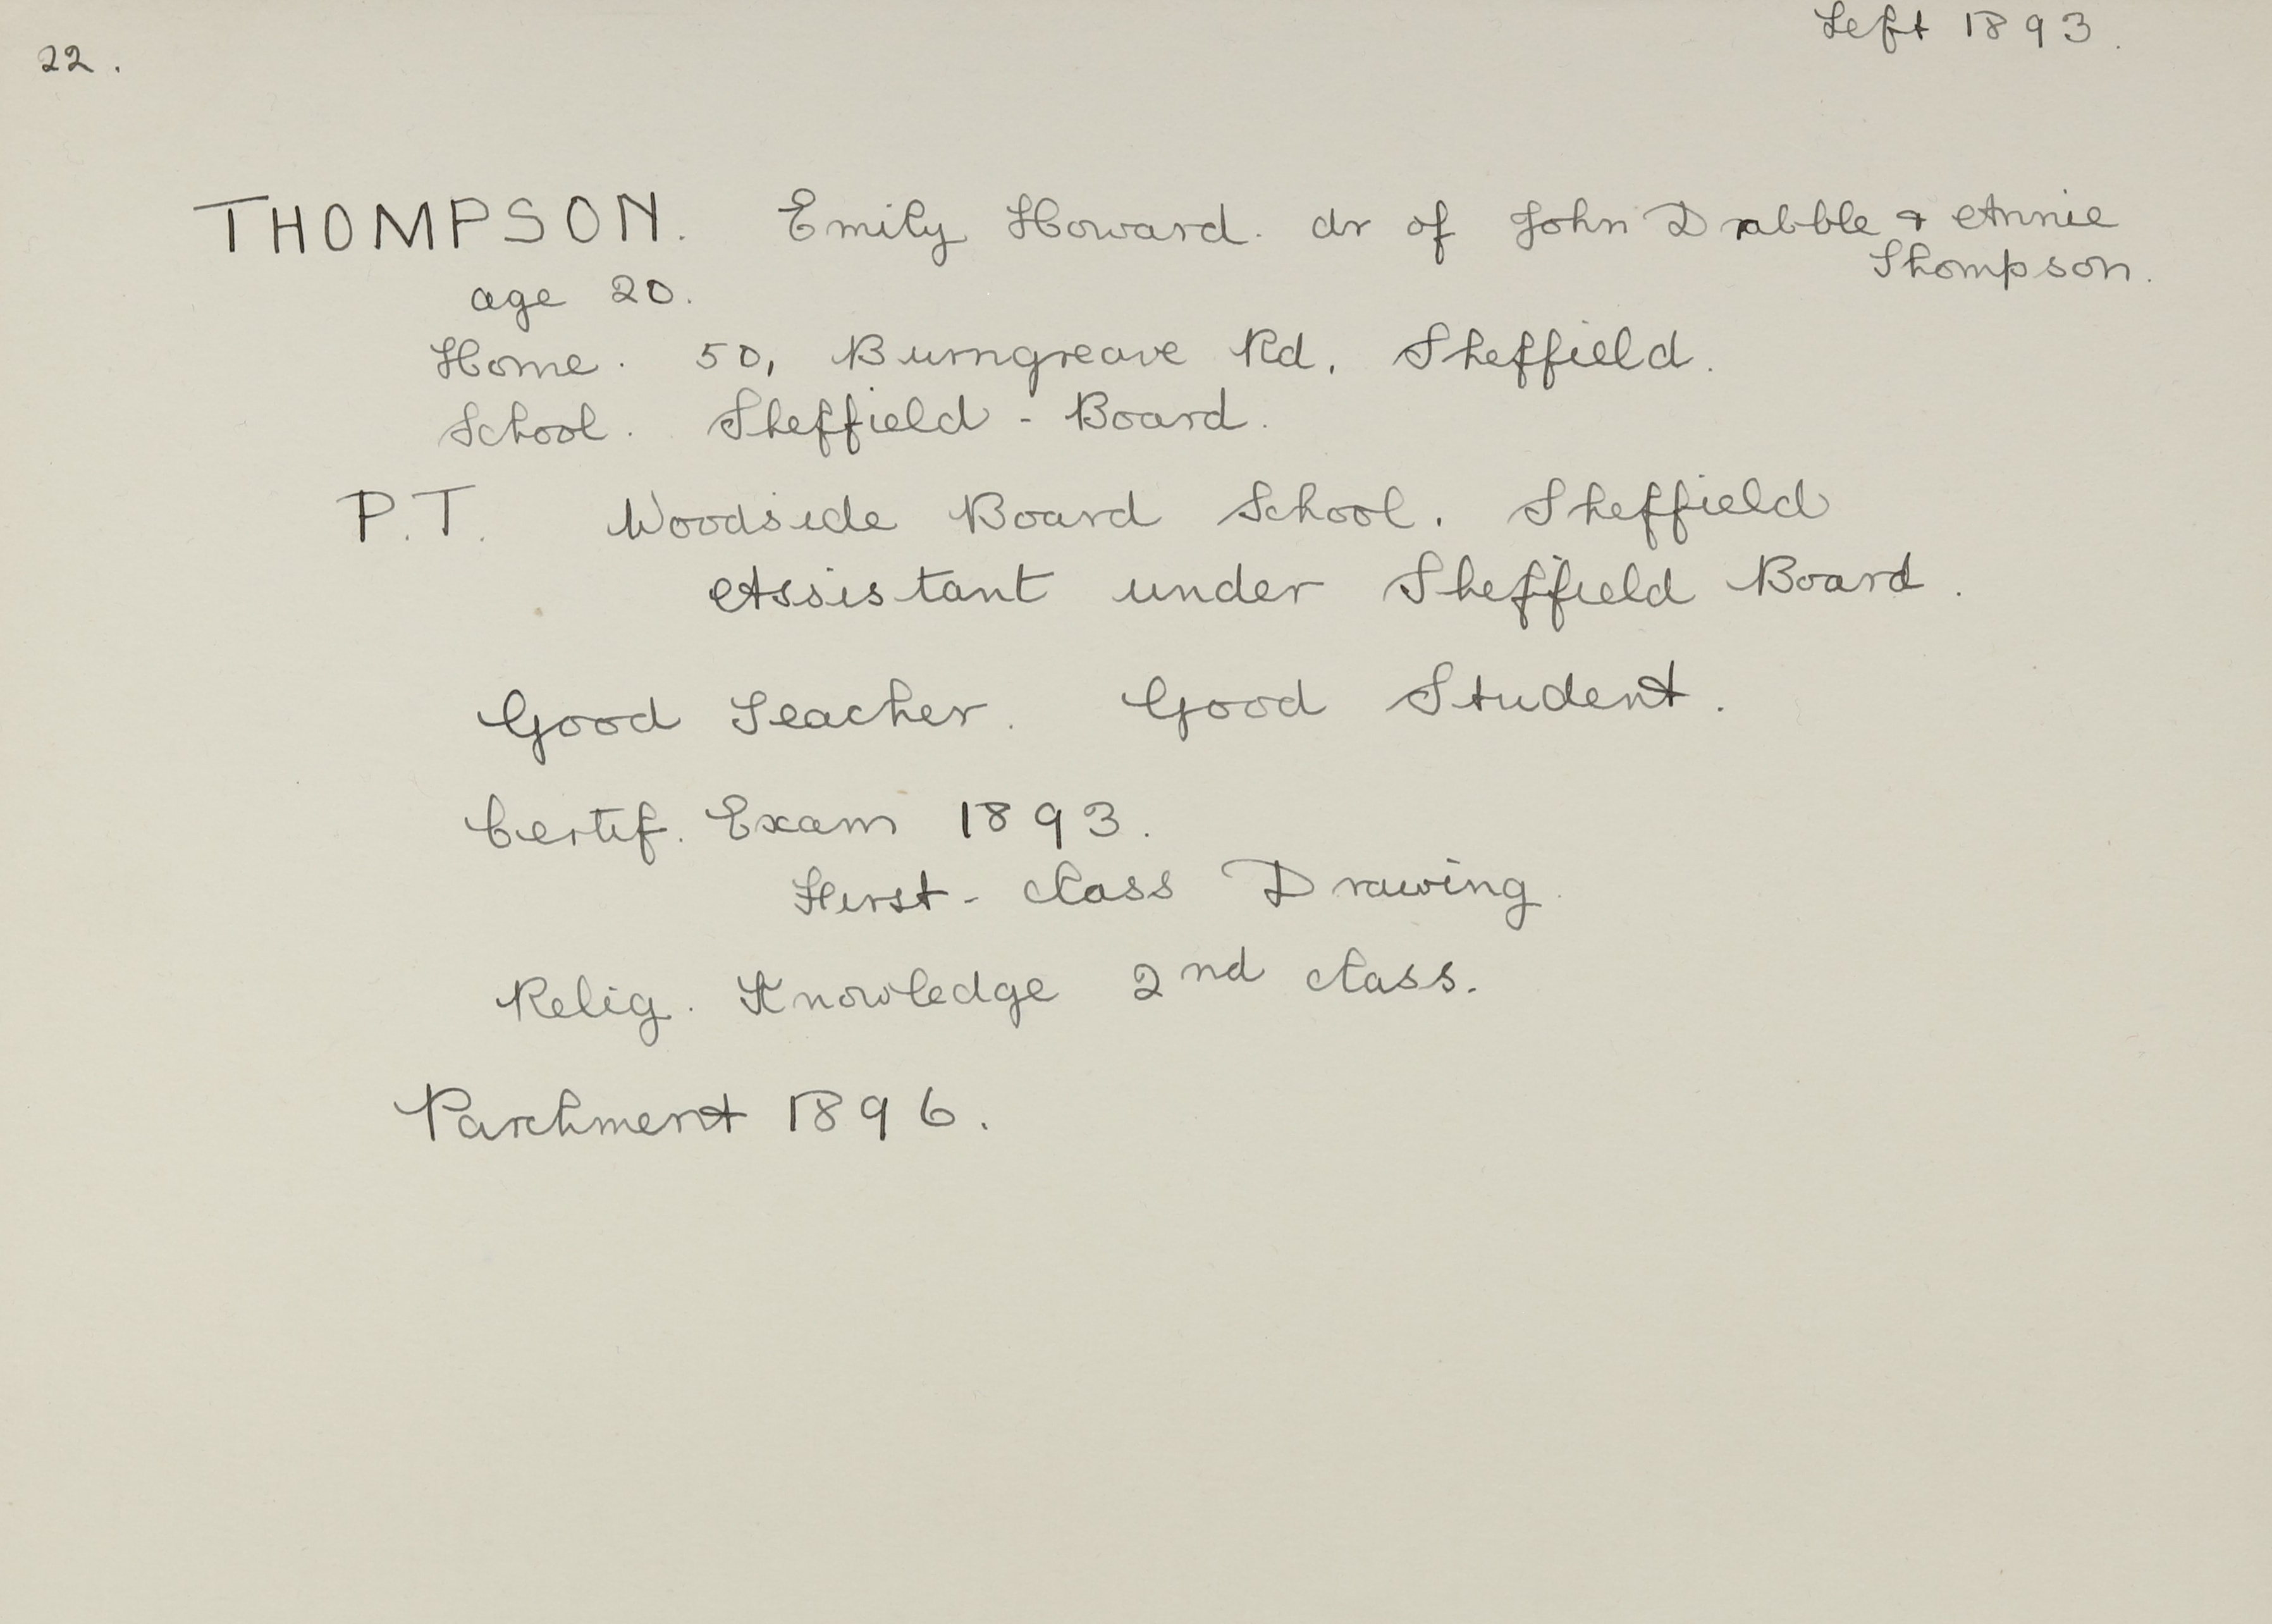 Left 1893.
22.
THOMPSON. Emily Howard. dr of John Drabble & Annie
Thompson.
age 20.
Home. 50, Burngreave Rd, Sheffield.
School. Sheffield - Board.
P.T. Woodside Board School. Sheffield
Assistant under Sheffield Board.
Good Teacher. Good Student.
Certif. Exam 1893.
First-class Drawing.
Relig. Knowledge 2nd class.
Parchment 1896.